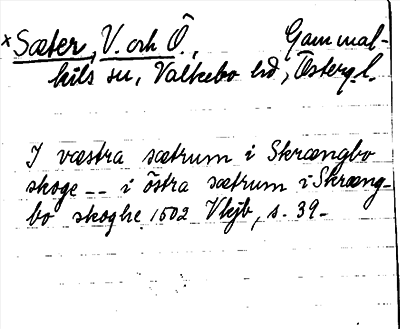 ×Sæter, V. och Ö., Gammal-
kils sn, Valkebo hd, Österg.l.
I væstra sætrum i Skrængbo
skoge -- i östra sætrum i Skræng-
bo skoghe 1502 Vkjb, s. 39-